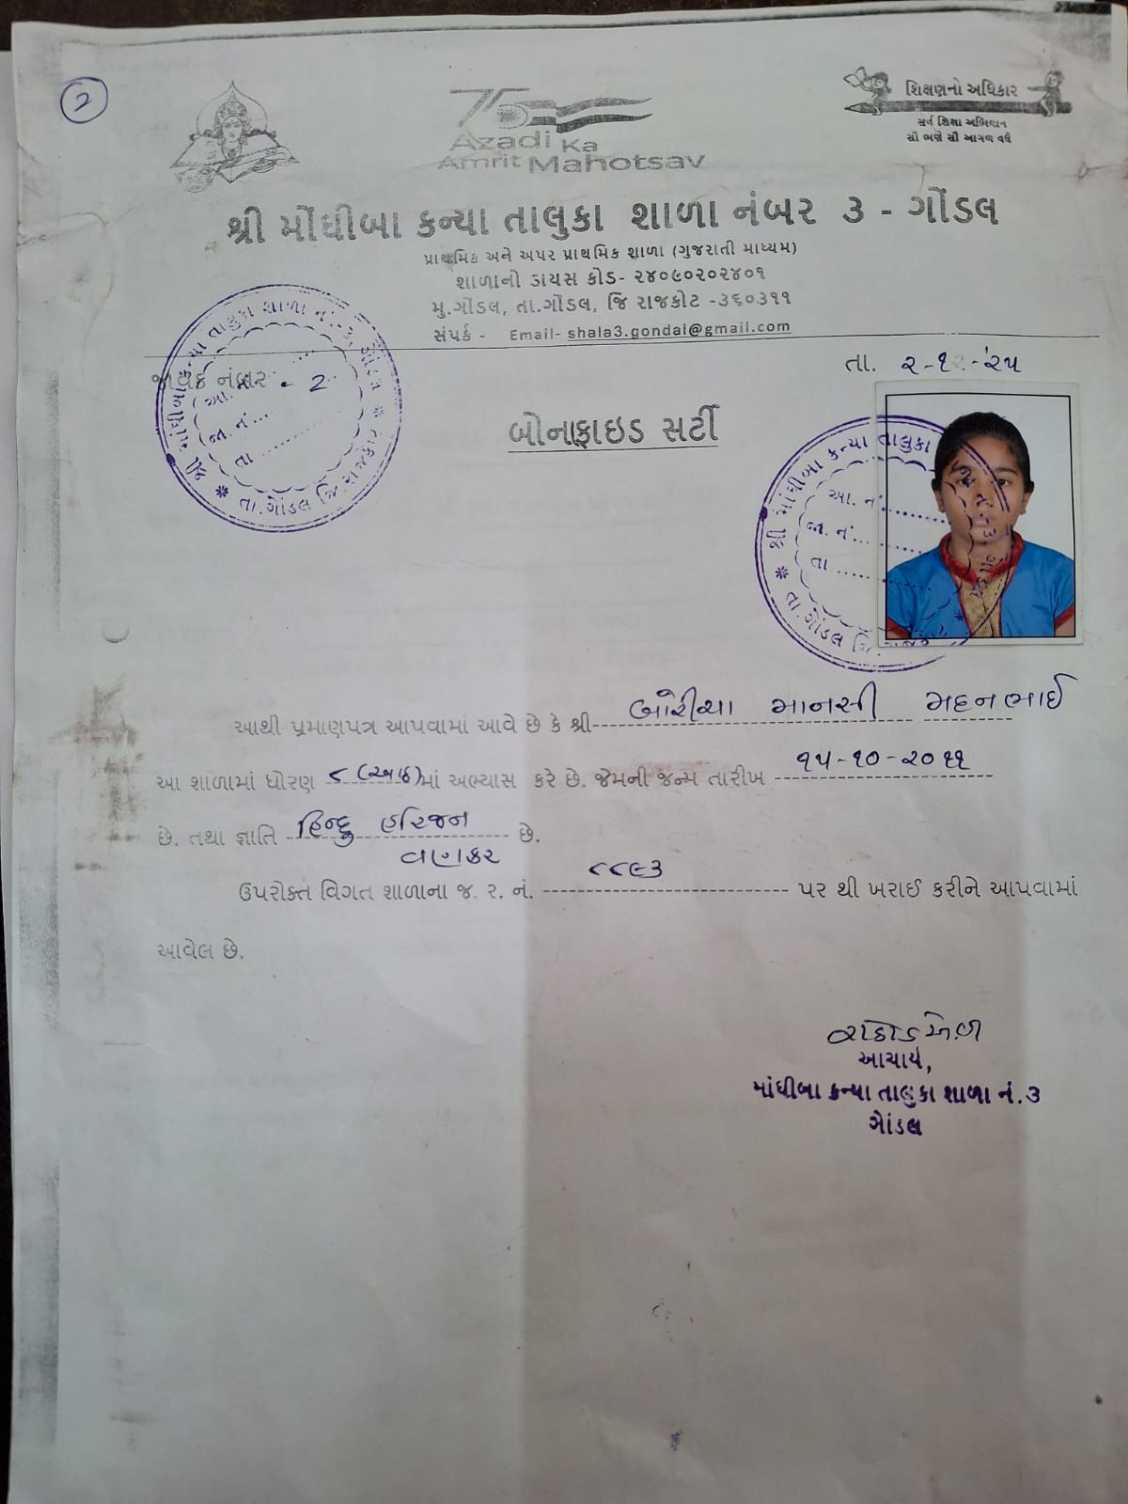 2
75
Azadi Ka
Amrit Mahotsav
શિક્ષણનો અધિકાર
સર્વ શિક્ષા અભિયાન
સૌ ભણે સૌ આગળ વધે
શ્રી મોંઘીબા કન્યા તાલુકા શાળા નંબર ૩ - ગોંડલ
પ્રાથમિક અને અપર પ્રાથમિક શાળા (ગુજરાતી માધ્યમ)
શાળાનો ડાયસ કોડ- ૨૪૦૯૦૨૦૨૪૦૧
મુ.ગોંડલ, તા.ગોંડલ, જિ રાજકોટ -૩૬૦૩૧૧
સંપર્ક - Email- shala3.gondal@gmail.com
જાવક નંબર - 2
તા. ૨-૧૨-'૨૫
બોનાફાઇડ સર્ટી
આથી પ્રમાણપત્ર આપવામાં આવે છે કે શ્રી બોરીચા માનસી મદનભાઈ
આ શાળામાં ધોરણ ૮ (આઠ)માં અભ્યાસ કરે છે. જેમની જન્મ તારીખ ૧૫-૧૦-૨૦૧૧
છે. તથા જ્ઞાતિ હિન્દુ હરિજન છે.
વણકર
ઉપરોક્ત વિગત શાળાના જ. ર. નં. ૮૮૯૩ પર થી ખરાઈ કરીને આપવામાં
આવેલ છે.
આચાર્ય,
મોંઘીબા કન્યા તાલુકા શાળા નં.૩
ગોંડલ